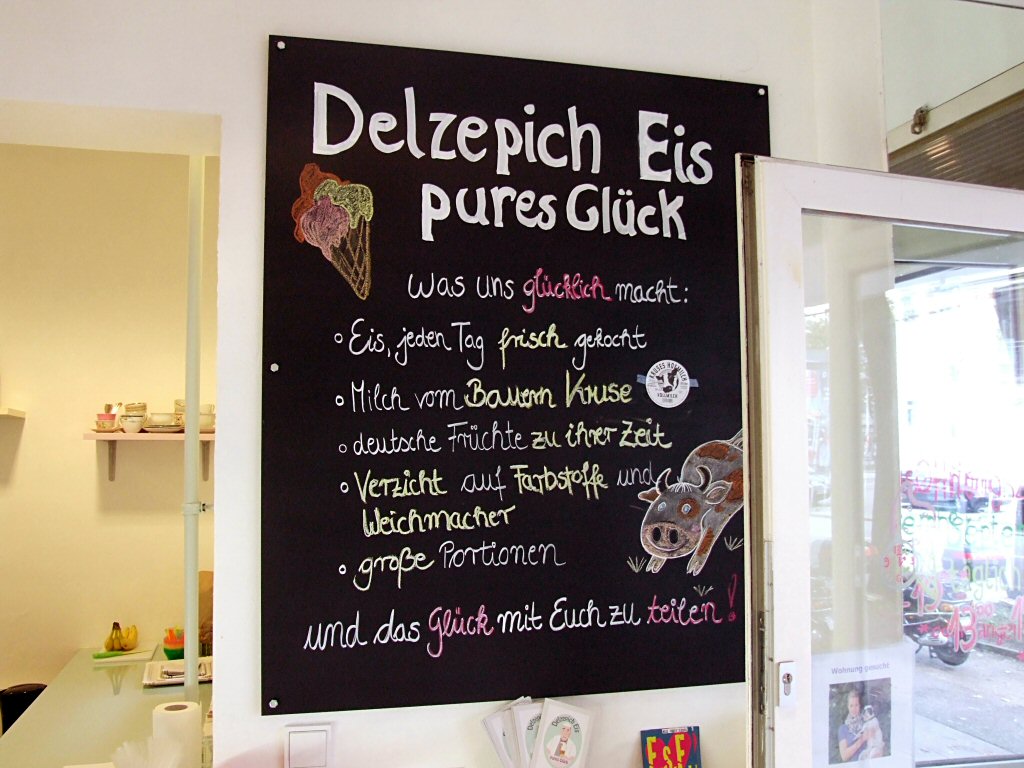 Delzepich Eis
pures Glück
Was uns glücklich macht:
Eis, jeden Tag frisch gekocht
Milch vom Bauern Kruse
deutsche Früchte zu ihrer Zeit
Verzicht auf Farbstoffe und
Weichmacher
große Portionen
und das Glück mit Euch zu teilen!
Delzepich Eis
Wohnung gesucht